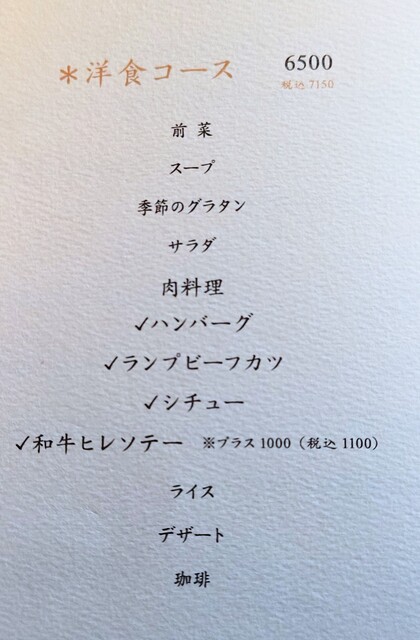 ＊洋食コース 6500
税込 7150
前菜
スープ
季節のグラタン
サラダ
肉料理
✓ハンバーグ
✓ランプビーフカツ
✓シチュー
✓和牛ヒレソテー ※プラス 1000（税込 1100）
ライス
デザート
珈琲